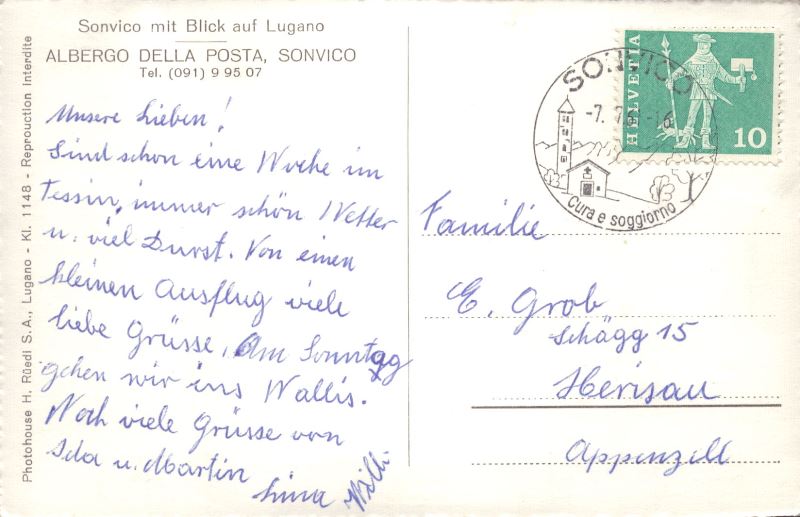 Sonvico mit Blick auf Lugano
ALBERGO DELLA POSTA, SONVICO
Tel. (091) 9 95 07
Photohouse H. Rüedi S.A., Lugano - Kl. 1148 - Reproduction interdite
Unsere Lieben!
Sind schon eine Woche im
Tessin, immer schön Wetter
u. viel Durst. Von einen
kleinen Ausflug viele
liebe Grüsse. Am Sonntag
gehen wir ins Wallis.
Noch viele Grüsse von
Ida u. Martin
Lina Willi.
SONVICO
-7.
Cura e soggiorno
HELVETIA
10
Familie
E. Grob
Schägg 15
Herisau
Appenzell